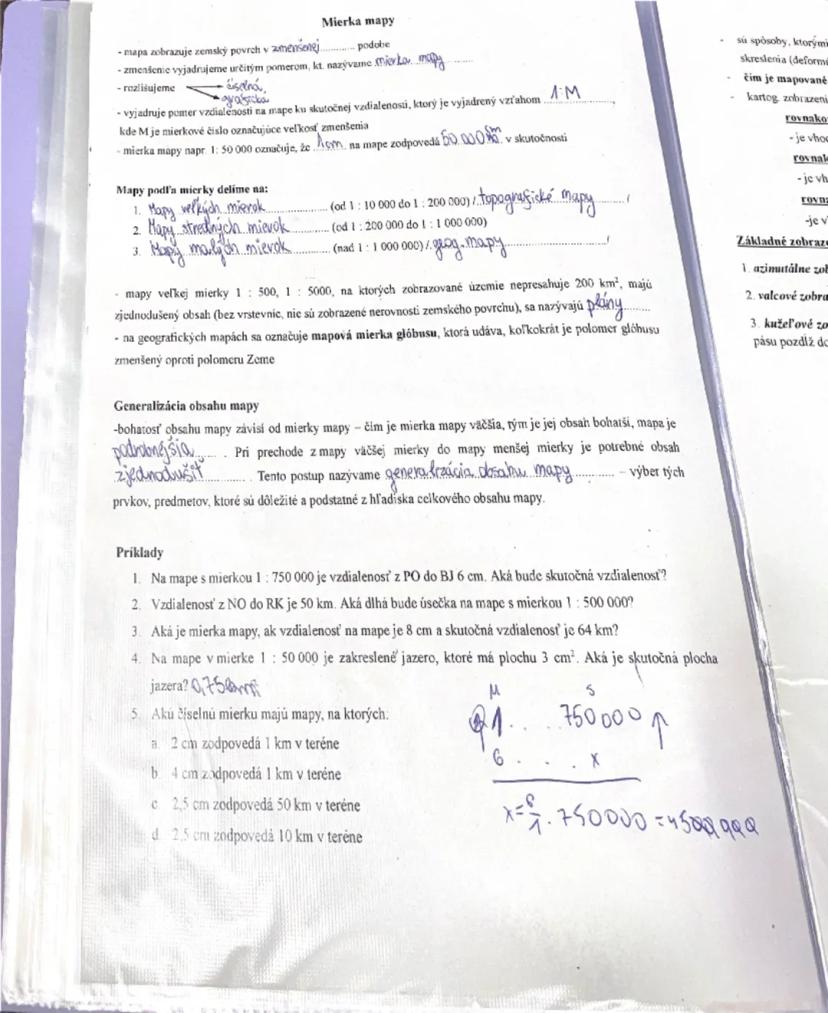 Mierka mapy
- mapa zobrazuje zemský povrch v zmenšenej............ podobe
- zmenšenie vyjadrujeme určitým pomerom, kt. nazývame mierka mapy.........
- rozlišujeme číselná,
grafická
- vyjadruje pomer vzdialenosti na mape ku skutočnej vzdialenosti, ktorý je vyjadrený vzťahom 1:M ..............,
kde M je mierkové číslo označujúce veľkosť zmenšenia
- mierka mapy napr. 1: 50 000 označuje, že 1cm na mape zodpovedá 50 000 cm v skutočnosti
Mapy podľa mierky delíme na:
1. Mapy veľkých mierok .............. (od 1 : 10 000 do 1 : 200 000) /.topografické mapy........./
2. Mapy stredných mierok .............. (od 1 : 200 000 do 1 : 1 000 000)
3. Mapy malých mierok .............. (nad 1 : 1 000 000) /.geog. mapy........................./
- mapy veľkej mierky 1 : 500, 1 : 5000, na ktorých zobrazované územie nepresahuje 200 km², majú
zjednodušený obsah (bez vrstevníc, nie sú zobrazené nerovnosti zemského povrchu), sa nazývajú plány........
- na geografických mapách sa označuje mapová mierka glóbusu, ktorá udáva, koľkokrát je polomer glóbusu
zmenšený oproti polomeru Zeme
Generalizácia obsahu mapy
-bohatosť obsahu mapy závisí od mierky mapy – čím je mierka mapy väčšia, tým je jej obsah bohatší, mapa je
podrobnejšia...... . Pri prechode z mapy väčšej mierky do mapy menšej mierky je potrebné obsah
zjednodušiť............ . Tento postup nazývame generalizácia obsahu mapy........... – výber tých
prvkov, predmetov, ktoré sú dôležité a podstatné z hľadiska celkového obsahu mapy.
Príklady
1. Na mape s mierkou 1 : 750 000 je vzdialenosť z PO do BJ 6 cm. Aká bude skutočná vzdialenosť?
2. Vzdialenosť z NO do RK je 50 km. Aká dlhá bude úsečka na mape s mierkou 1 : 500 000?
3. Aká je mierka mapy, ak vzdialenosť na mape je 8 cm a skutočná vzdialenosť je 64 km?
4. Na mape v mierke 1 : 50 000 je zakreslené jazero, ktoré má plochu 3 cm². Aká je skutočná plocha
jazera? 0,75
5. Akú číselnú mierku majú mapy, na ktorých:
a. 2 cm zodpovedá 1 km v teréne
b. 4 cm zodpovedá 1 km v teréne
c. 2,5 cm zodpovedá 50 km v teréne
d. 2,5 cm zodpovedá 10 km v teréne
M S
1 . . . 750 000
6 . . . x
x = 6/1 . 750000 = 4500 000
- sú spôsoby, ktorými
skreslenia
- čím je mapované
- kartog.
- je
- je
-je
Základné
1. azimutálne
2. valcové
3. kužeľové
pásu pozdĺž